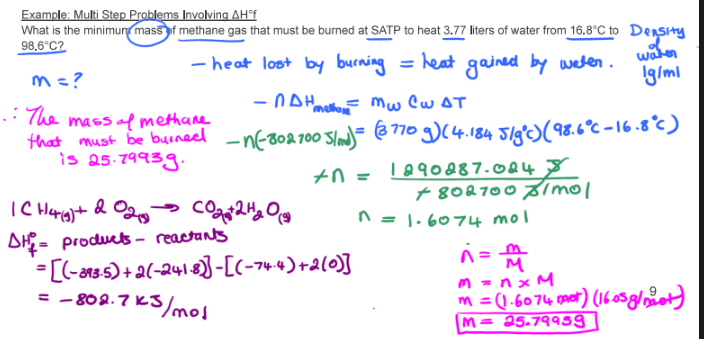 Example: Multi Step Problems Involving ΔH°f
What is the minimum mass of methane gas that must be burned at SATP to heat 3.77 liters of water from 16.8°C to
98.6°C?
Density
of
water
1g/ml
- heat lost by burning = heat gained by water.
m = ?
- nΔHmethane = mw Cw ΔT
∴ The mass of methane
that must be burned
is 25.7993g.
-n(-802700 J/mol) = (3770 g)(4.184 J/g°C)(98.6°C-16.8°C)
+n = 1290287.024 J
+802700 J/mol
n = 1.6074 mol
1CH4(g) + 2O2(g) → CO2(g) + 2H2O(g)
ΔH°f = products - reactants
= [(-393.5)+2(-241.8)]-[(-74.4)+2(0)]
= -802.7 kJ/mol
n = m
M
m = n x M
9
m = (1.6074 mol)(16.05g/mol)
m = 25.7993g